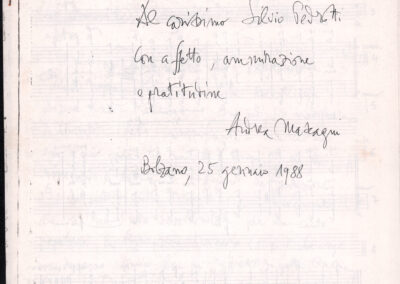 Al carissimo Silvio Pedrotti
con affetto, ammirazione
e gratitudine
Andrea Mascagni
Bolzano, 25 gennaio 1988